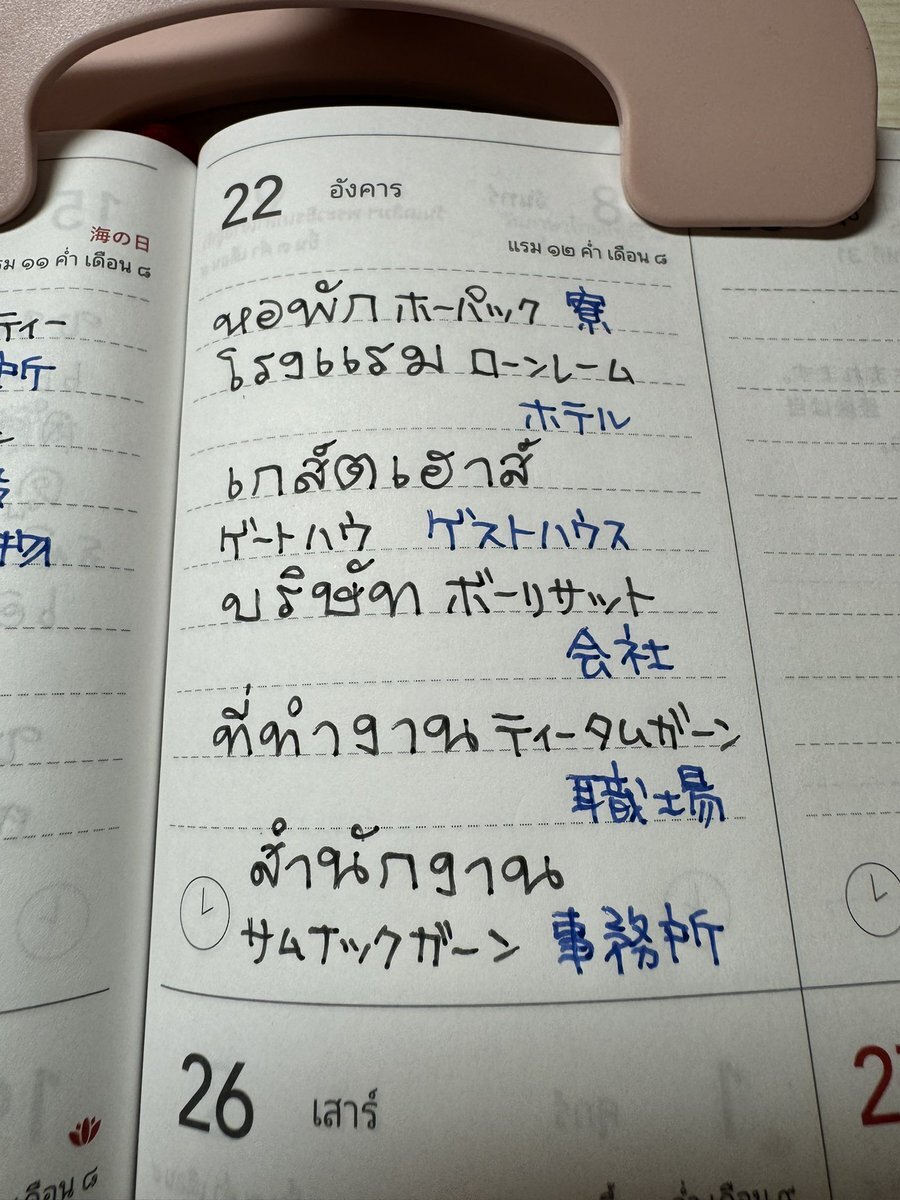 海の日
แรม ๑๑ ค่ำ เดือน ๘
ティー
所
物
22 อังคาร
แรม ๑๒ ค่ำ เดือน ๘
หอพัก ホーパック 寮
โรงแรม ローンレーム
ホテル
เกส์ตเฮาส์
ゲートハウ ゲストハウス
บริษัท ボーリサット
会社
ที่ทำงาน ティータムガーン
職場
สำนักงาน
サムナックガーン 事務所
26 เสาร์